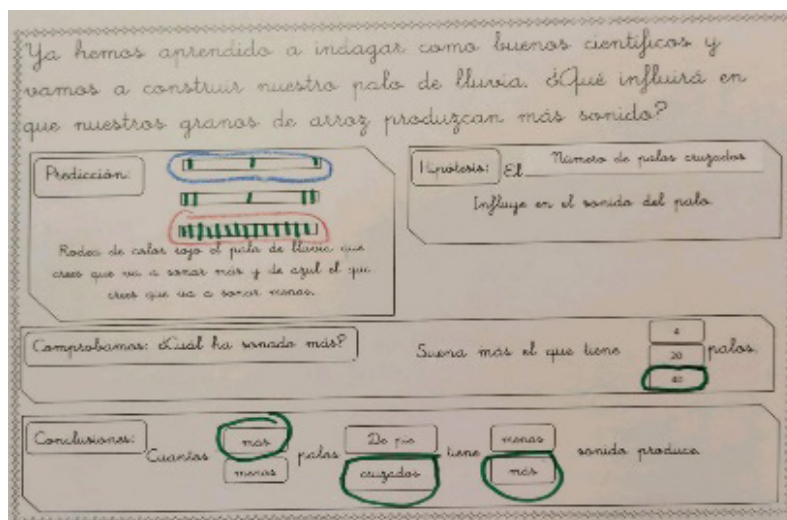 Ya hemos aprendido a indagar como buenos científicos y
vamos a construir nuestro palo de lluvia. ¿Qué influirá en
que nuestros granos de arroz produzcan más sonido?
Predicción:
Rodea de color rojo el palo de lluvia que
crees que va a sonar más y de azul el que
crees que va a sonar menos.
Hipótesis: El Número de palos cruzados
Influye en el sonido del palo.
Comprobamos: ¿Cuál ha sonado más?
Suena más el que tiene
4
20
40
palos.
Conclusiones:
Cuantos
más
menos
palos
De pie
cruzados
tiene
menos
más
sonido produce.